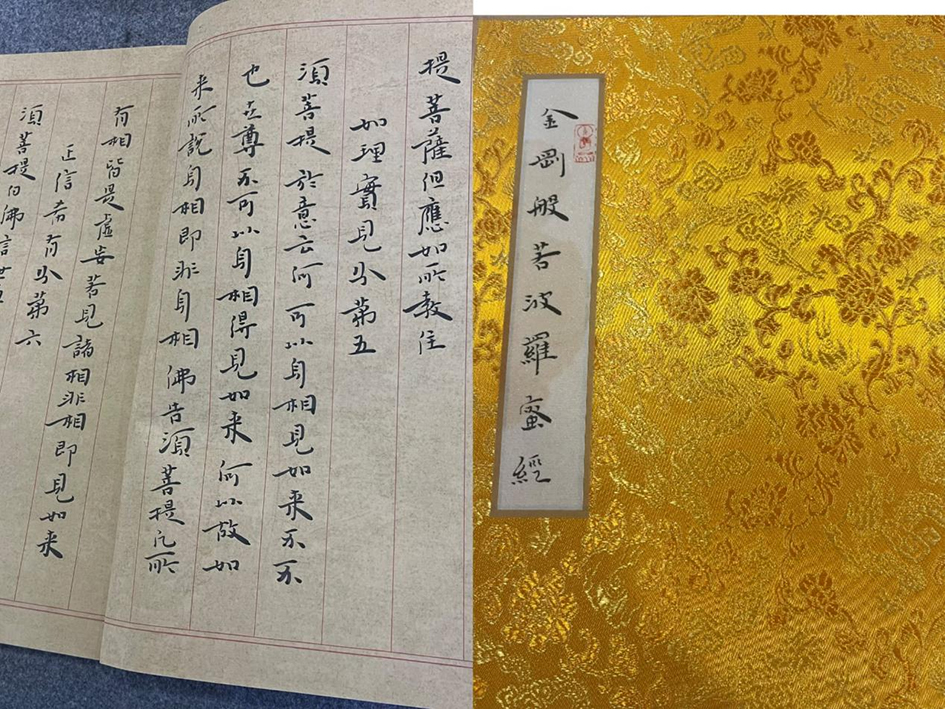 金剛般若波羅蜜經
提菩薩但應如所教住
如理實見分第五
須菩提於意云何可以身相見如来不不
也世尊不可以身相得見如来何以故如
来所說身相即非身相佛告須菩提凡所
有相皆是虛妄若見諸相非相即見如来
正信希有分第六
須菩提白佛言世